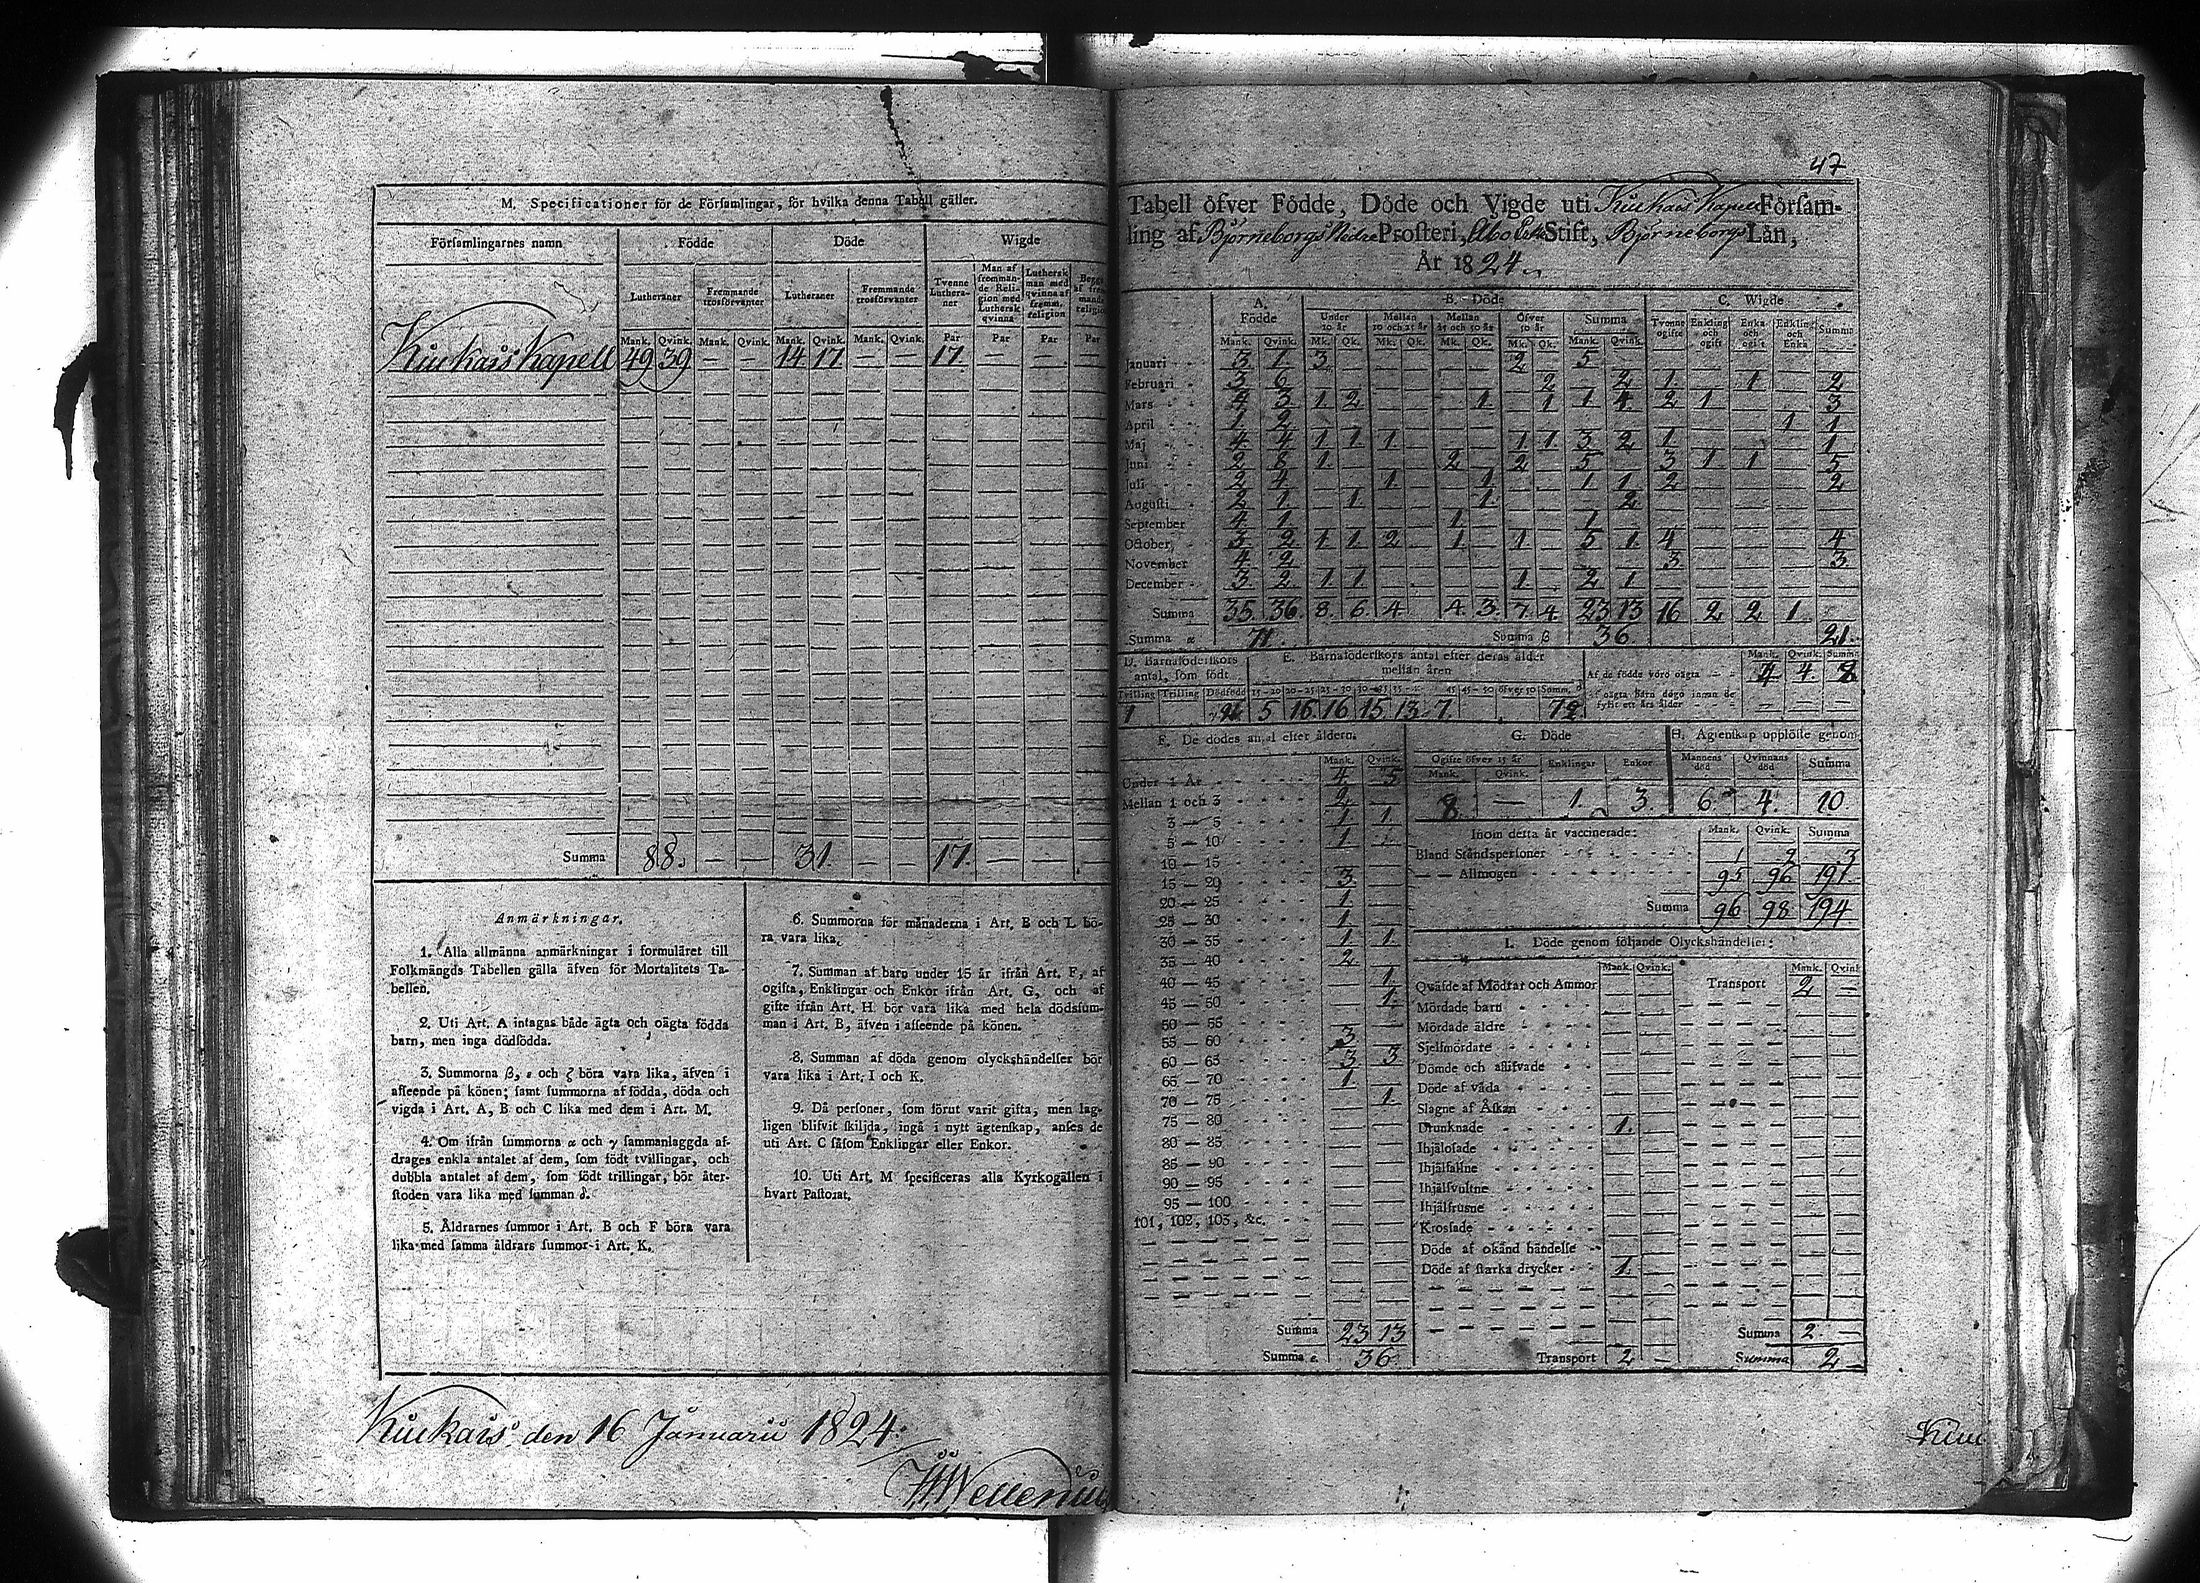 M. Specificationer för de Församlingar, för hvilka denna Tabell gäller.
Församlingarnes namn Födde Döde Wigde
Lutheraner Fremmande trosförvanter Lutheraner Fremmande trosförvanter Tvenne Lutheraner Man af fremmande Religion med Luthersk qvinna Luthersk man med qvinna af fremm. religion
Mank. Qvink. Mank. Qvink. Mank. Qvink. Mank. Qvink. Par Par Par Par
Kiukais Kapell 49 39 — — 14 17 — — 17 — — —
Summa 88. — — 31. — — 17. — — —
Anmärkningar.
1. Alla allmänna anmärkningar i formuläret till
Folkmängds Tabellen gälla äfven för Mortalitets Ta-
bellen.
2. Uti Art. A intagas både ägta och oägta födda
barn, men inga dödfödda.
3. Summorna β, ε och ζ böra vara lika, äfven i
afseende på könen; samt summorna af födda, döda och
vigda i Art. A, B och C lika med dem i Art. M.
4. Om ifrån summorna α och γ sammanlaggda af-
drages enkla antalet af dem, som födt tvillingar, och
dubbla antalet af dem, som födt trillingar, bör åter-
stoden vara lika med summan δ.
5. Åldrarnes summor i Art. B och F böra vara
lika med samma åldrars summor i Art. K.
6. Summorna för månaderna i Art. B och L bö-
ra vara lika.
7. Summan af barn under 15 år ifrån Art. F, af
ogifta, Enklingar och Enkor ifrån Art. G, och af
gifte ifrån Art. H bör vara lika med hela dödssum-
man i Art. B, äfven i afseende på könen.
8. Summan af döda genom olyckshändelser bör
vara lika i Art. I och K.
9. Då personer, som förut varit gifta, men lag-
ligen blifvit skiljda, ingå i nytt ägtenskap, anses de
uti Art. C såsom Enklingar eller Enkor.
10. Uti Art. M specificeras alla Kyrkogällen i
hvart Pastorat.
Kiukais, den 16 Januarii 1824.
Wellenius
47
Tabell öfver Födde, Döde och Vigde uti Kiukais Kapell Församling
af Björneborgs Nedre Prosteri, Åbo Erke Stift, Björneborgs Län,
År 1824.
A. Födde B. Döde C. Wigde
Under 10 år Mellan 10 och 25 år Mellan 25 och 50 år Öfver 50 år Summa Tvenne ogifte Enkling och ogift Enka och ogift Enkling och Enka Summa
Mank. Qvink. Mk. Qk. Mk. Qk. Mk. Qk. Mk. Qk. Mank. Qvink.
Januari 3 1 3 2 5
Februari 3 6 2 2 1 1 2
Mars 4 3 1 2 1 1 1 4 2 1 3
April 1 2 1 1
Maj 4 4 1 1 1 1 1 3 2 1 1
Juni 2 8 1 2 2 5 3 1 1 5
Juli 2 4 1 1 1 1 2 2
Augusti 2 1 1 1 2
September 4 1 1 1
October 3 2 1 1 2 1 1 5 1 4 4
November 4 2 3 3
December 3 2 1 1 1 2 1
Summa 35 36 8 6 4 4 3 7 4 23 13 16 2 2 1
Summa α 71. Summa β 36 21.
D. Barnaföderskors antal, som födt
E. Barnaföderskors antal efter deras ålder mellan åren
Dödfödd 15-20 20-25 25-30 30-35 45 45-50 öfver 50 Summ. δ
1 5 16 16 15 13 7 72
Mank. Qvink. Summa
Af de födde voro oägta 4 4 8
Af oägta Barn dogo innan de fyllt ett års ålder — — —
F. De dödes antal efter åldern.
Mank. Qvink.
Under 1 År 4 5
Mellan 1 och 3 2 —
3 — 5 1 1
5 — 10 1
10 — 15
15 — 20 3
20 — 25 1
25 — 30 1
30 — 35 1 1
35 — 40 2
40 — 45 1
45 — 50 1
50 — 55
55 — 60 3
60 — 65 3 3
65 — 70 1
70 — 75 1
75 — 80
80 — 85
85 — 90
90 — 95
95 — 100
101, 102, 103, &c.
Summa 23 13
Summa ε. 36
G. Döde
Ogifte öfver 15 år Enklingar Enkor
Mank. Qvink.
8. — 1. 3.
H. Ägtenskap upplöste genom
Mannens död Qvinnans död Summa
6 4 10
Inom detta år vaccinerade: Mank. Qvink. Summa
Bland Ståndspersoner 1 2 3
— — Allmogen 95 96 191
Summa 96 98 194
I. Döde genom följande Olyckshändelser:
Mank. Qvink. Mank. Qvink
Qväfde af Mödrar och Ammor Transport 2 —
Mördade barn
Mördade äldre
Sjelfmördare
Dömde och aflifvade
Döde af våda
Slagne af Åskan
Drunknade 1.
Ihjälosade
Ihjälfallne
Ihjälsvultne
Ihjälfrusne
Krossade
Döde af okänd händelse
Döde af starka drycker 1.
Summa 2. —
Transport 2 — Summa 2 —